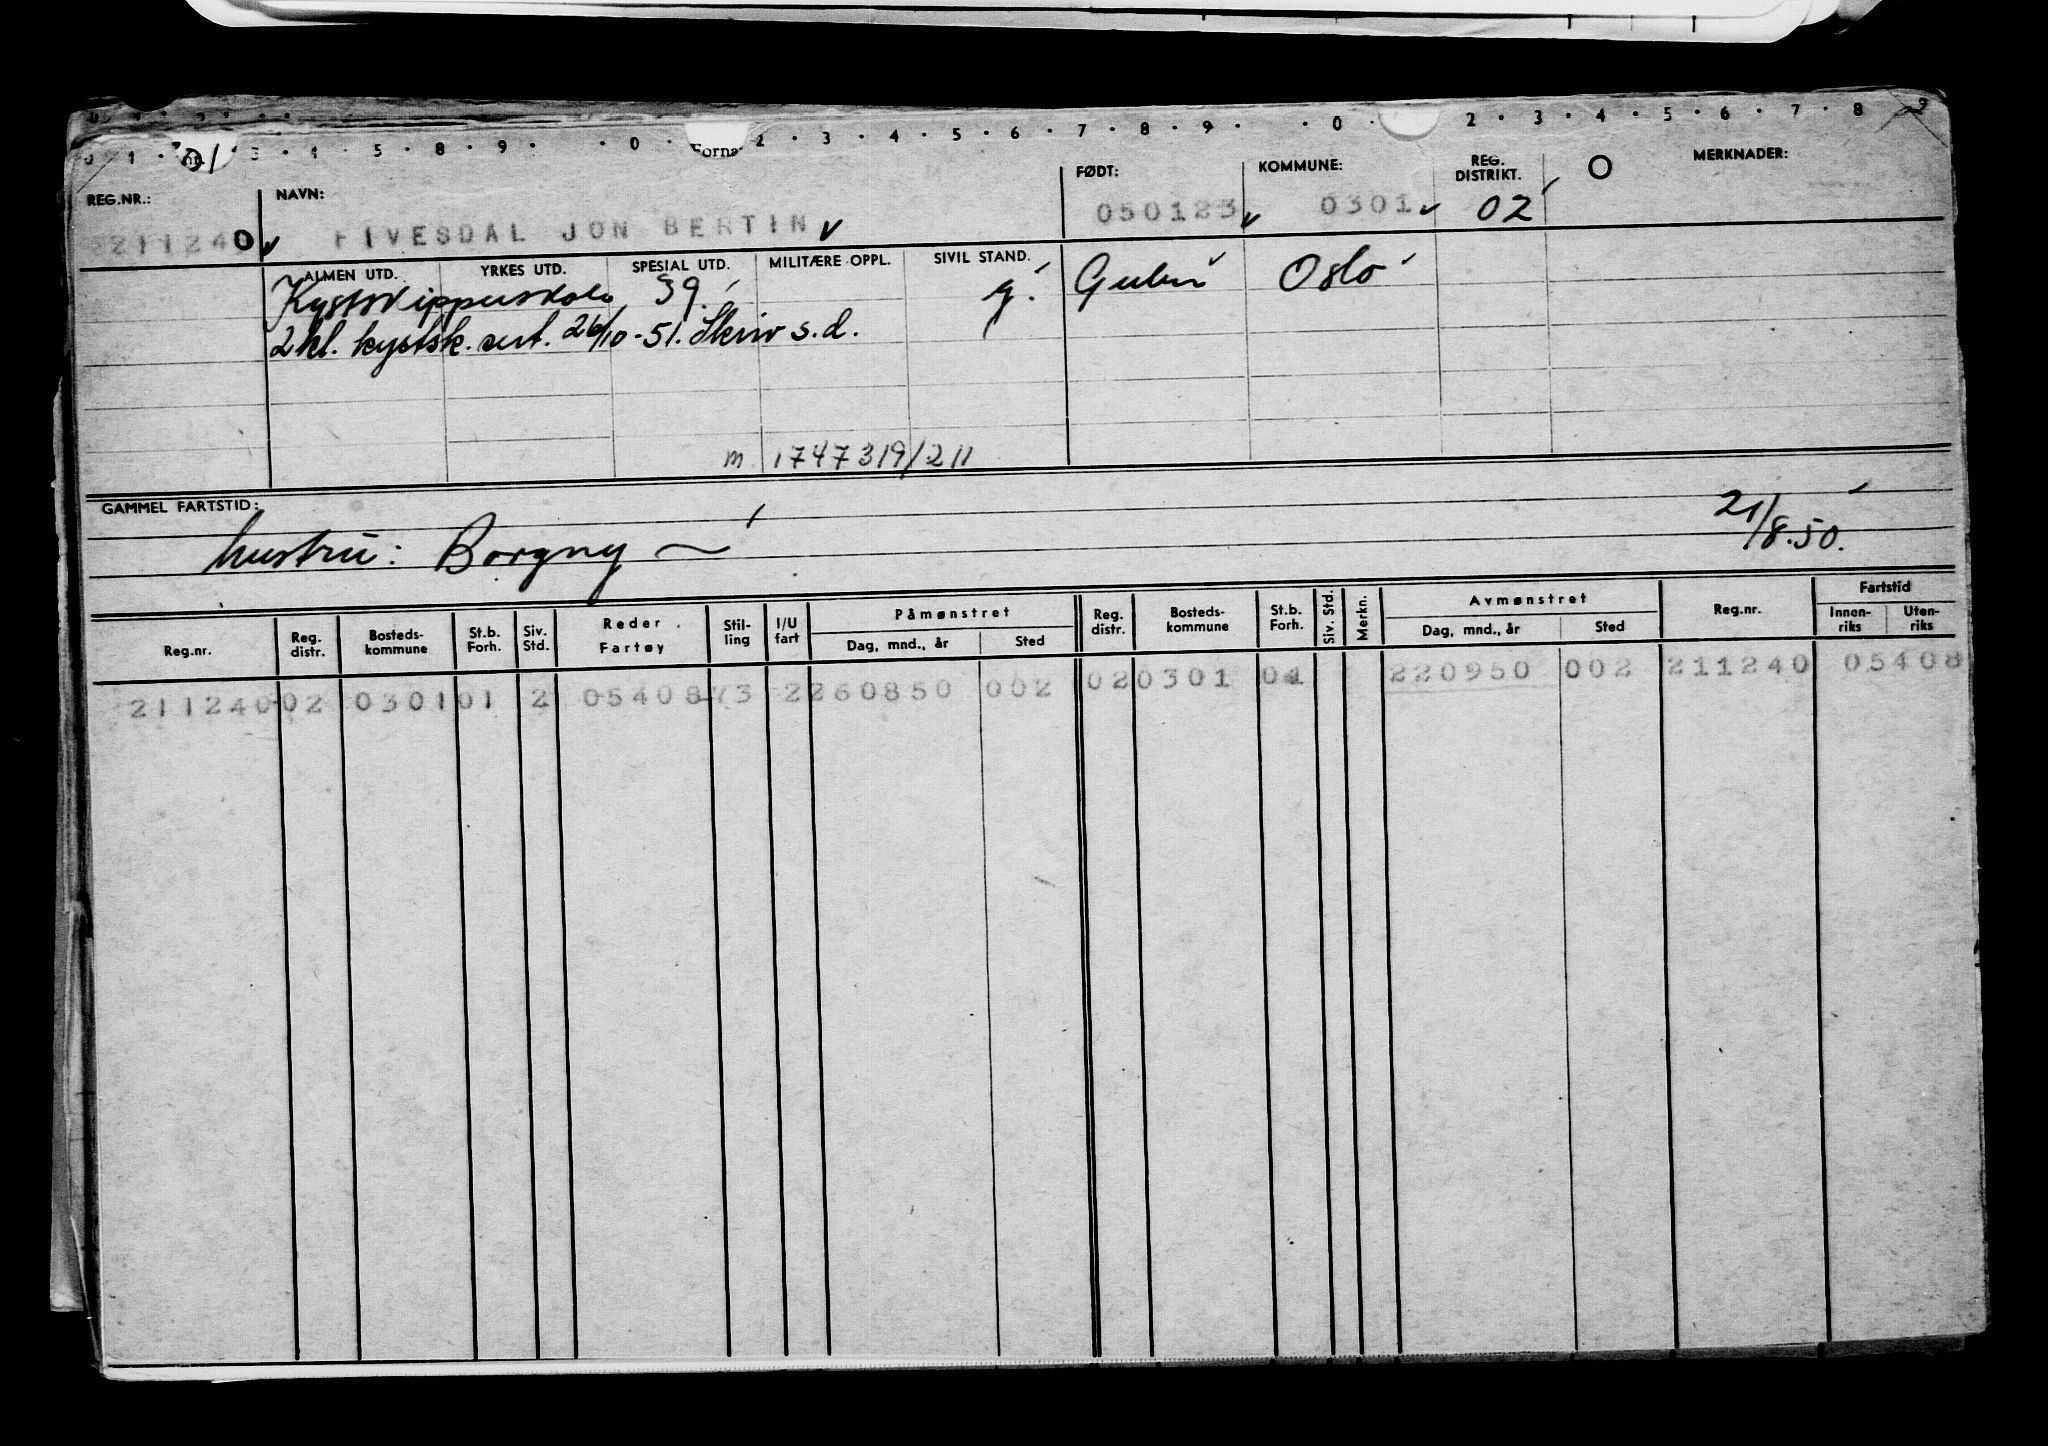 0 1 · 01 3 · 4 · 5 · 8 · 9 · · 0 · Forna 2 · 3 · 4 · 5 · 6 · 7 · 8 · 9 · · 0 · 2 · 3 · 4 · 5 · 6 · 7 · 8 · 9
REG.NR.: NAVN: FØDT: KOMMUNE: REG. DISTRIKT. O MERKNADER:
211240 FIVESDAL JON BERTIN 050123 0301 02
ALMEN UTD. YRKES UTD. SPESIAL UTD. MILITÆRE OPPL. SIVIL STAND.
Kystskipperskole 39. g. Oslo
2 kl. kystsk. sert. 26/10-51. Skriv s.d.
m 1747319/211
GAMMEL FARTSTID:
hustru: Borgny ~ 21/8.50.
Reg.nr. Reg. distr. Bosteds-kommune St.b. Forh. Siv. Std. Reder Fartøy Stil-ling I/U fart Påmønstret Dag, mnd., år Sted Reg. distr. Bosteds-kommune St.b. Forh. Siv. Std. Merkn. Avmønstret Dag, mnd., år Sted Reg.nr. Fartstid Innen-riks Uten-riks
211240 02 0301 01 2 05408 73 2 260850 002 02 0301 01 220950 002 211240 05408